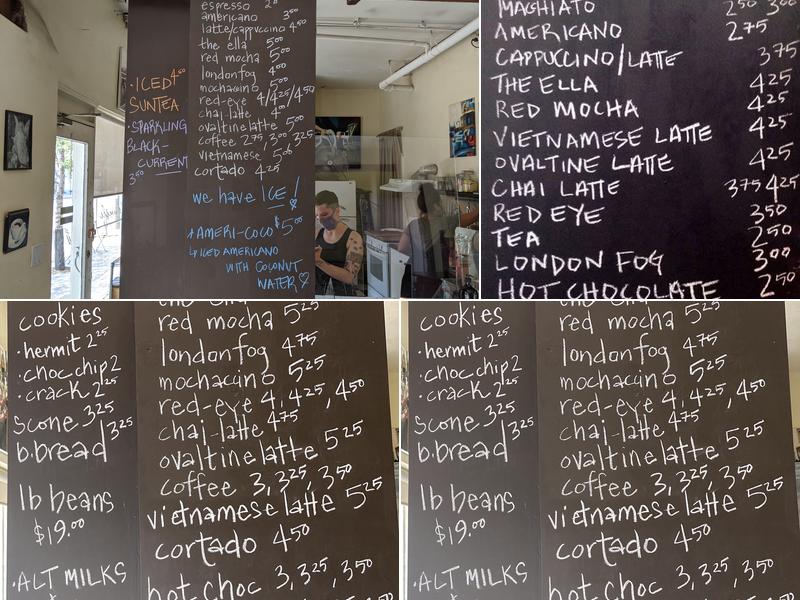 espresso
americano 3⁰⁰
latte/cappuccino 4⁵⁰
the ella 5⁰⁰
red mocha 5⁰⁰
londonfog 4⁰⁰
mochaccino 5⁰⁰
red-eye 4/4²⁵/4⁵⁰
chai-latte 4⁰⁰
ovaltine latte 5⁰⁰
coffee 2⁷⁵, 3⁰⁰, 3²⁵
vietnamese 5⁰⁰
cortado 4²⁵
we have ICE!
AMERI-COCO $5⁰⁰
ICED AMERICANO
WITH COCONUT
WATER♡
·ICED 4⁰⁰
SUNTEA
·SPARKLING
BLACK-
CURRENT
3⁵⁰
MACHIATO 2⁵⁰ 3⁰⁰
AMERICANO 2⁷⁵
CAPPUCCINO/LATTE 3⁷⁵
THE ELLA 4²⁵
RED MOCHA 4²⁵
VIETNAMESE LATTE 4²⁵
OVALTINE LATTE 4²⁵
CHAI LATTE 3⁷⁵ 4²⁵
RED EYE 3⁵⁰
TEA 2⁵⁰
LONDON FOG 3⁰⁰
HOT CHOCOLATE 2⁵⁰
cookies
·hermit 2²⁵
·choc chip 2
·crack 2²⁵
scone 3²⁵
b.bread 3²⁵
1b beans
$19.⁰⁰
·ALT MILKS
the ella
red mocha 5²⁵
londonfog 4⁷⁵
mochaccino 5²⁵
red-eye 4, 4²⁵, 4⁵⁰
chai-latte 4⁷⁵
ovaltine latte 5²⁵
coffee 3, 3²⁵, 3⁵⁰
vietnamese latte 5²⁵
cortado 4⁵⁰
hot choc 3, 3²⁵, 3⁵⁰
cookies
·hermit 2²⁵
·choc chip 2
·crack 2²⁵
scone 3²⁵
b.bread 3²⁵
1b beans
$19.⁰⁰
·ALT MILKS
red mocha 5²⁵
londonfog 4⁷⁵
mochaccino 5²⁵
red-eye 4, 4²⁵, 4⁵⁰
chai-latte 4⁷⁵
ovaltine latte 5²⁵
coffee 3, 3²⁵, 3⁵⁰
vietnamese latte 5²⁵
cortado 4⁵⁰
hot choc 3, 3²⁵, 3⁵⁰